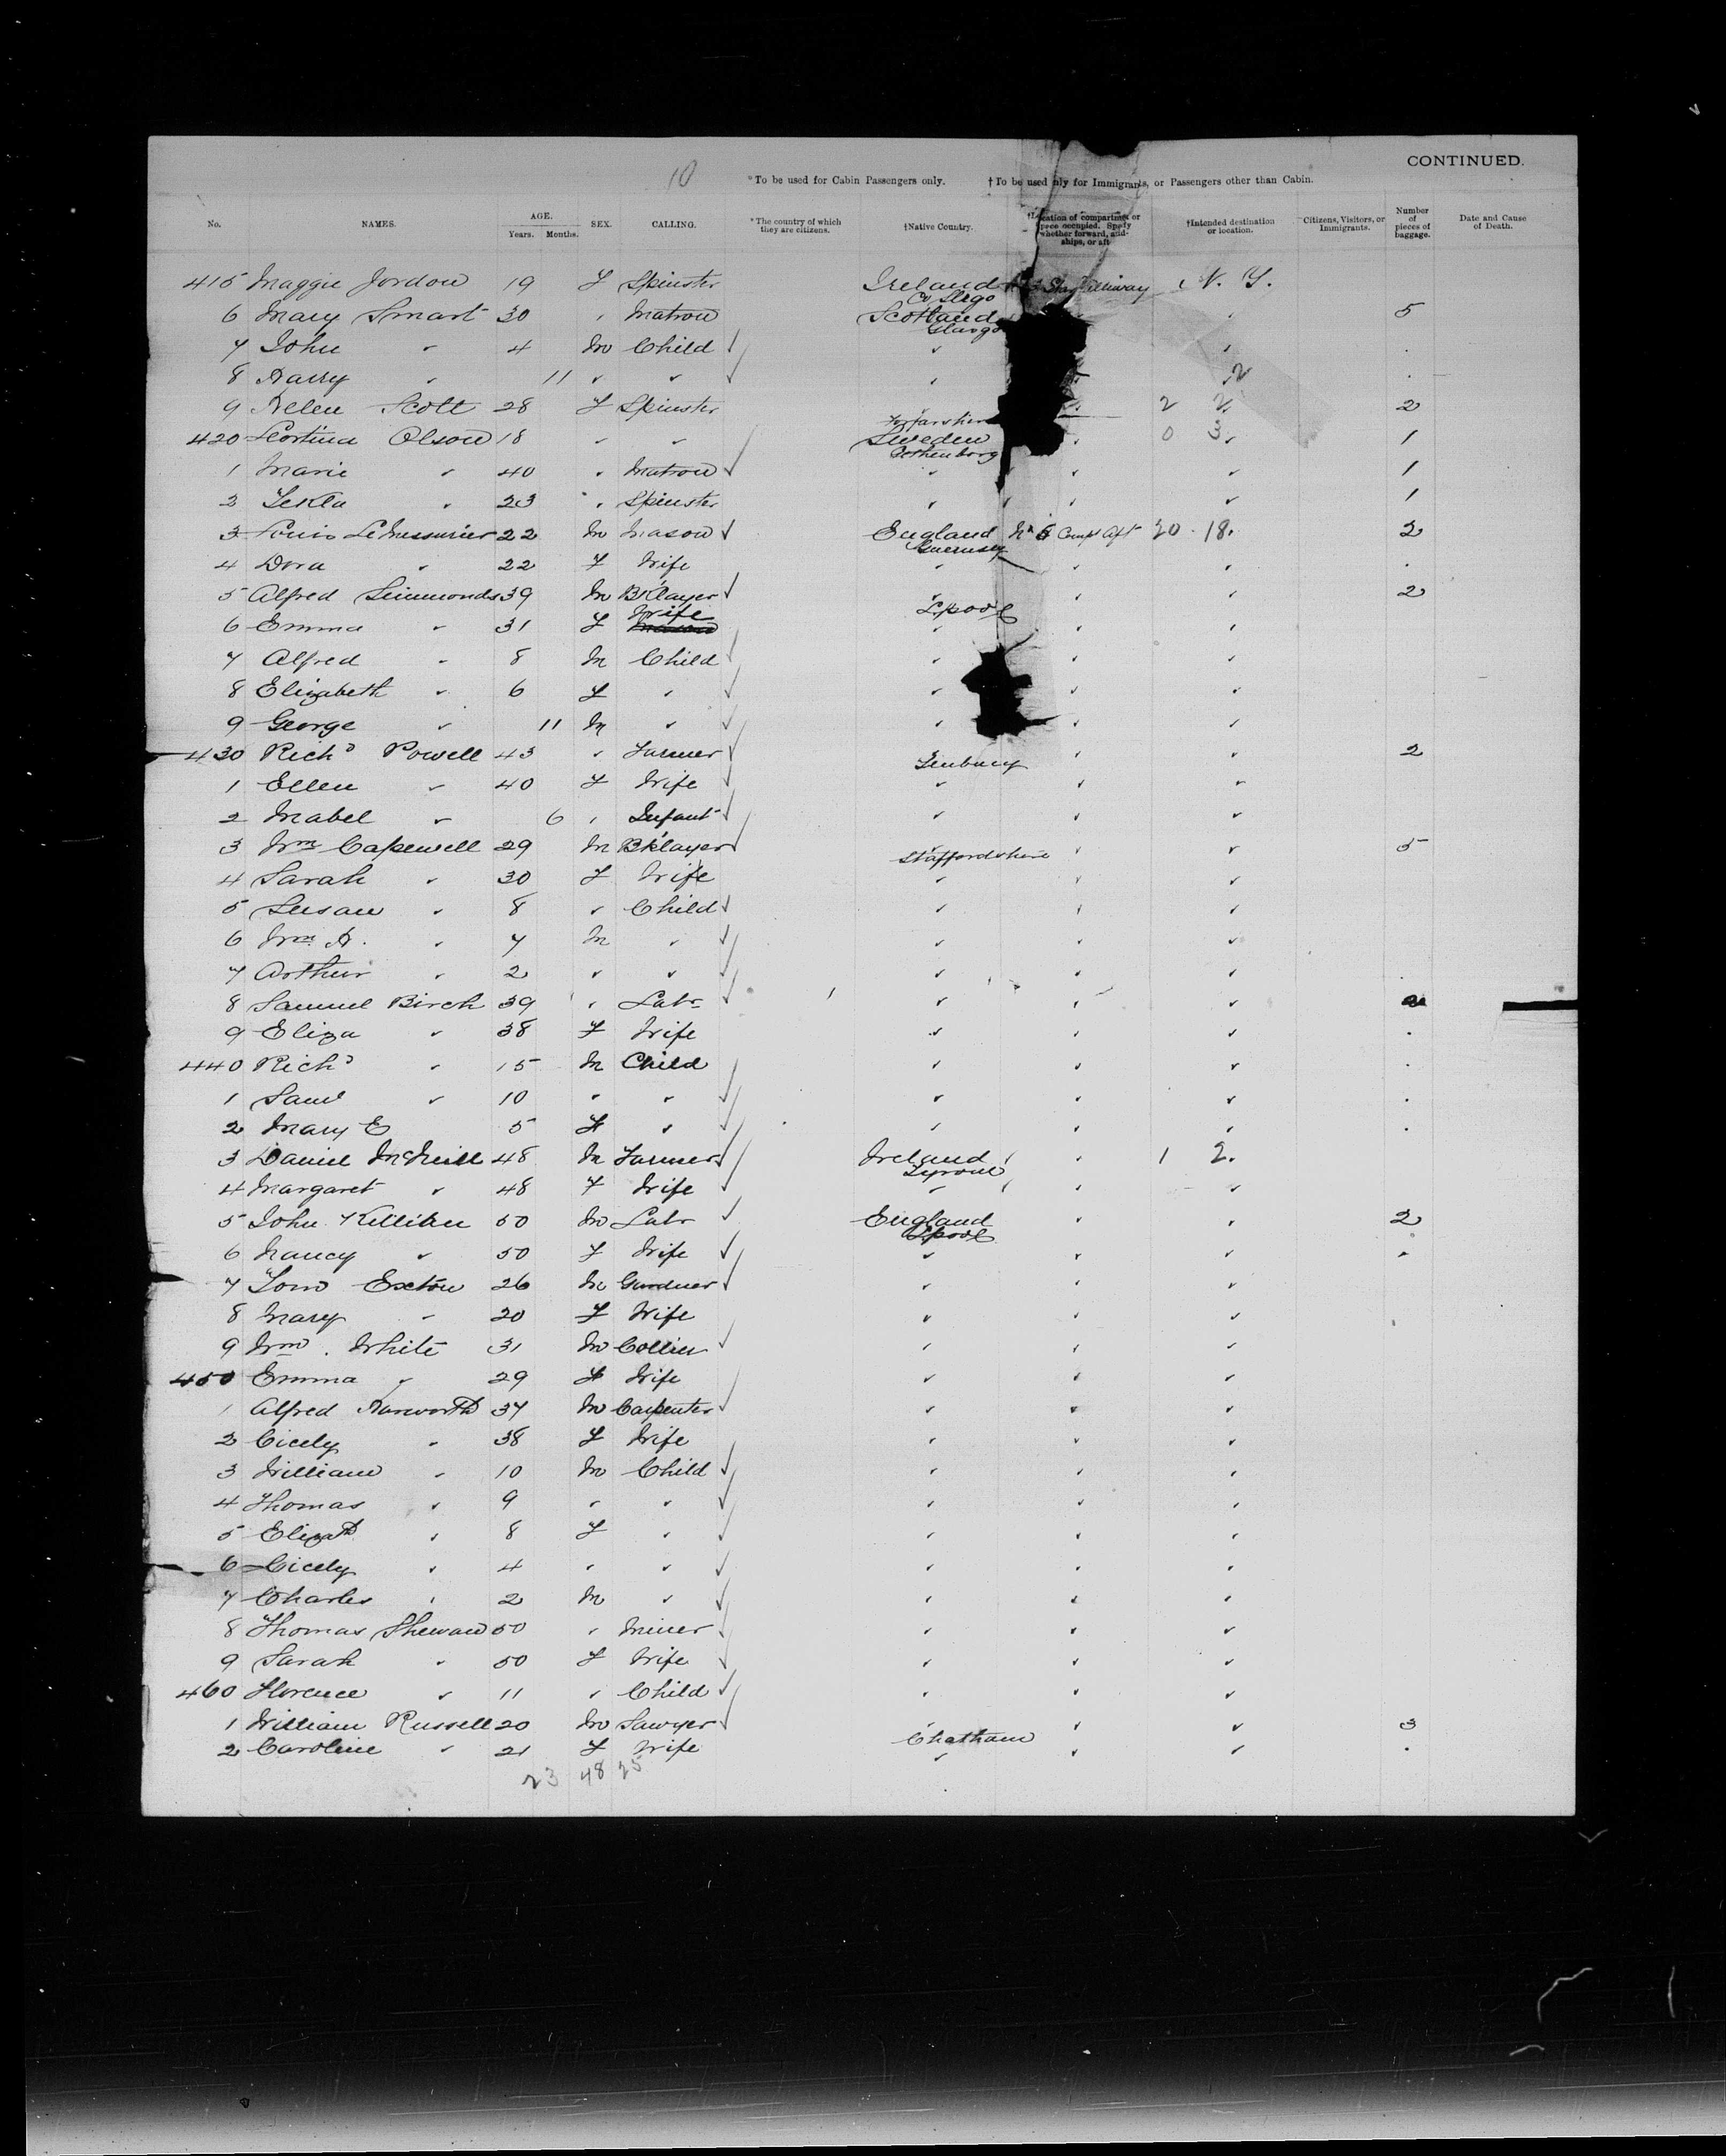 CONTINUED.
10 *To be used for Cabin Passengers only. †To be used only for Immigrants, or Passengers other than Cabin.
No. NAMES. AGE. Years. Months. SEX. CALLING. *The country of which they are citizens. †Native Country. cation of compartment or whether forward, ships, or aft †Intended destination or location. Citizens, Visitors, or Immigrants. Number of pieces of baggage. Date and Cause of Death.
415 Maggie Jordon 19 F Spinster Ireland Co Sligo N. Y.
6 Mary Smart 30 " Matron Scotland Glasgo " 5
7 John " 4 M Child " "
8 Harry " 11 " " "
9 Helen Scott 28 F Spinster Forfarshire 2 2 2
420 Olson 18 " " Sweden Gothenborg " 0 3 " 1
1 Marie " 40 " Matron " " " 1
2 Tekla " 23 " Spinster " " " 1
3 Louis LeMessurier 22 M Mason England Guernsey No 5 Compt Aft 20 18 2
4 Dora " 22 F Wife " " "
5 Alfred Simmonds 39 M Bklayer " Lpool " " 2
6 Emma " 31 F Wife " " "
7 Alfred " 8 M Child " "
8 Elizabeth " 6 F " " " "
9 George " 11 M " " " "
430 Richd Powell 43 " Farmer Tenbury " " 2
1 Ellen " 40 F Wife " " "
2 Mabel " 6 " Infant " " "
3 Wm Capewell 29 M Bklayer Staffordshire " " 5
4 Sarah " 30 F Wife " " "
5 Susan " 8 " Child " " "
6 Wm H. " 7 M " " " "
7 Arthur " 2 " " " " "
8 Samuel Birch 39 " Labr " " " 2
9 Eliza " 38 F Wife " " "
440 Richd " 15 M Child " " "
1 Saml " 10 " " " " "
2 Mary E 5 F " " " "
3 Daniel McNeill 48 M Farmer Ireland Tyrone " 1 2
4 Margaret " 48 F Wife " " "
5 John 50 M Labr England Lpool " " 2
6 Nancy " 50 F Wife " " "
7 Tom Exton 26 M Gardner " " "
8 Mary " 20 F Wife " " "
9 Wm White 31 M Collier " " "
450 Emma " 29 F Wife " " "
1 Alfred 37 M Carpenter " " "
2 Cicely " 38 F Wife " " "
3 William " 10 M Child " " "
4 Thomas " 9 " " " " "
5 Elizath " 8 F " " " "
6 Cicely " 4 " " " " "
7 Charles " 2 M " " " "
8 Thomas 50 " Miner " " "
9 Sarah " 50 F Wife " " "
460 Florence " 11 " Child " " "
1 William Russell 20 M Sawyer " Chatham " " 3
2 Caroline " 21 F Wife " " "
23 48 25